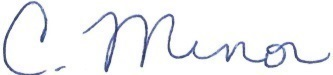 C. Minor